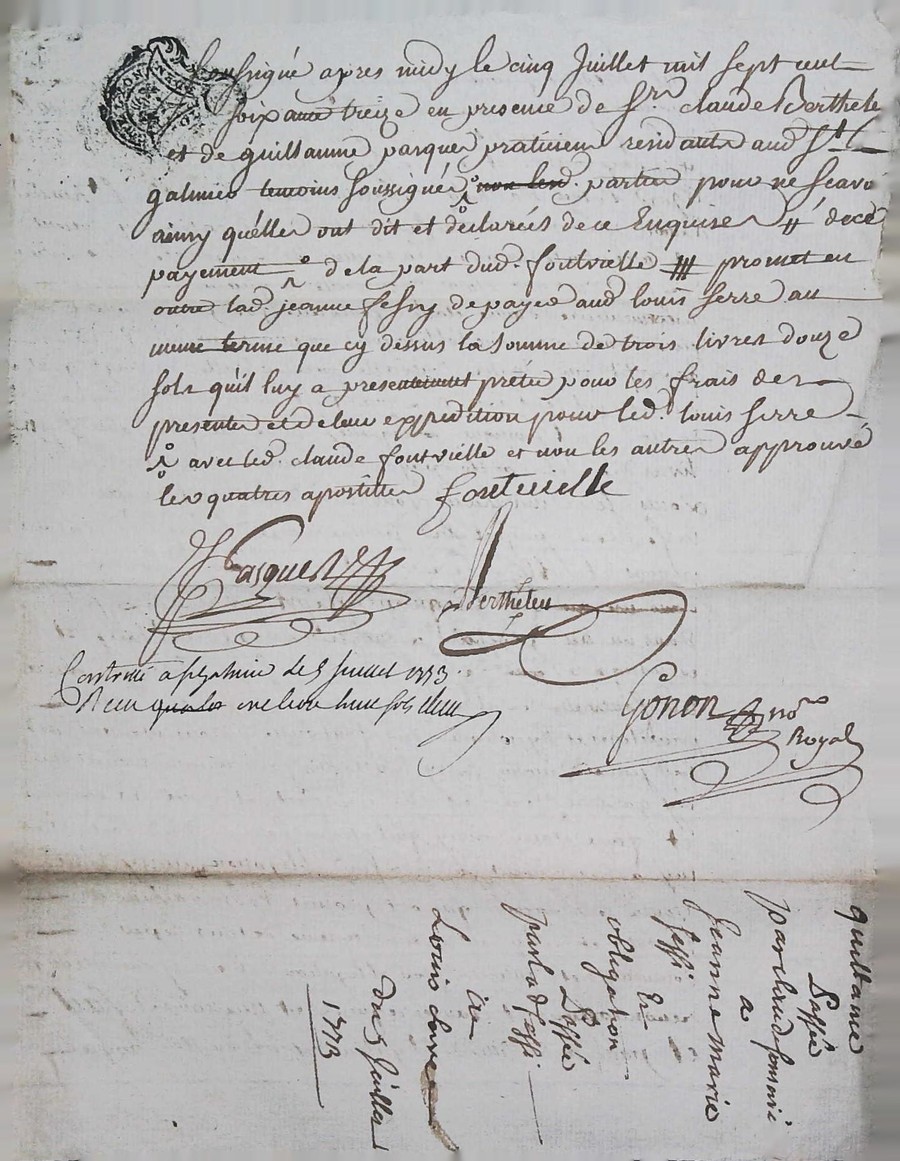 soussigné apres midy le cinq Juillet mil sept cent
soixante treize en presence de Sr. claude Berthele
et de guillaume pasquer praticien residants aud St
galmier temoins soussignés non lesd. parties pour ne scavoi
quelles ont dit et declarées de ce Enquises # de ce
payement de la part dud. fontvielle # promet en
outre lad. jeanne de payer aud louis serre au
meme terme que cy dessus la somme de trois livres douze
sols qu'il luy a presentement prêtée pour les frais des
presentes et de leur expedition pour led. louis serre
avec led. claude fontvielle et non les autres approuvé
les quatres apostilles fontvielle
Pasquer
Berthelet
Contrôllé a st galmier le 5 juillet 1773.
Reçu une livre huit sols
Gonon no.re
Royal
quittance
Passée
par claud
a
Jeanne marie
Et
obligation
Passée
par lad
a
Louis
du 5 juillet
1773